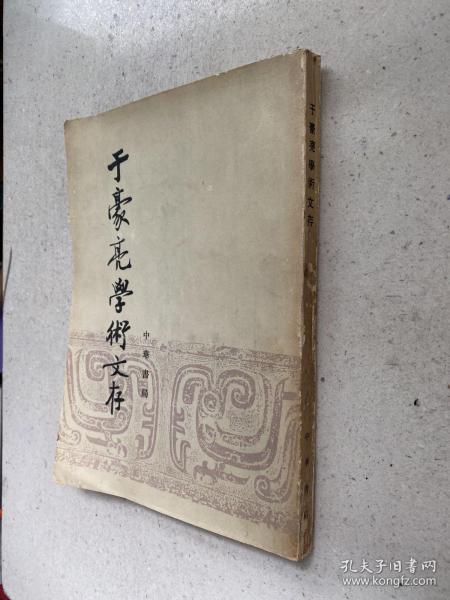 于豪亮學術文存
中華書局
于豪亮學術文存
孔夫子旧书网
www.kongfz.com